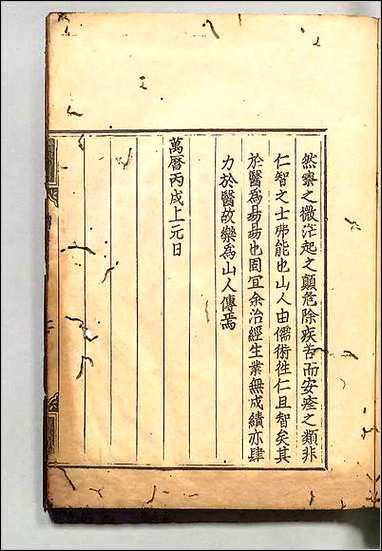 然察之微茫起之顛危除疾苦而安痊之類非
仁智之士弗能也山人由儒術徃仁且智矣其
於醫為易易也固冝余治經生業無成績亦肆
力於醫故樂為山人傳焉
萬曆丙戌上元日